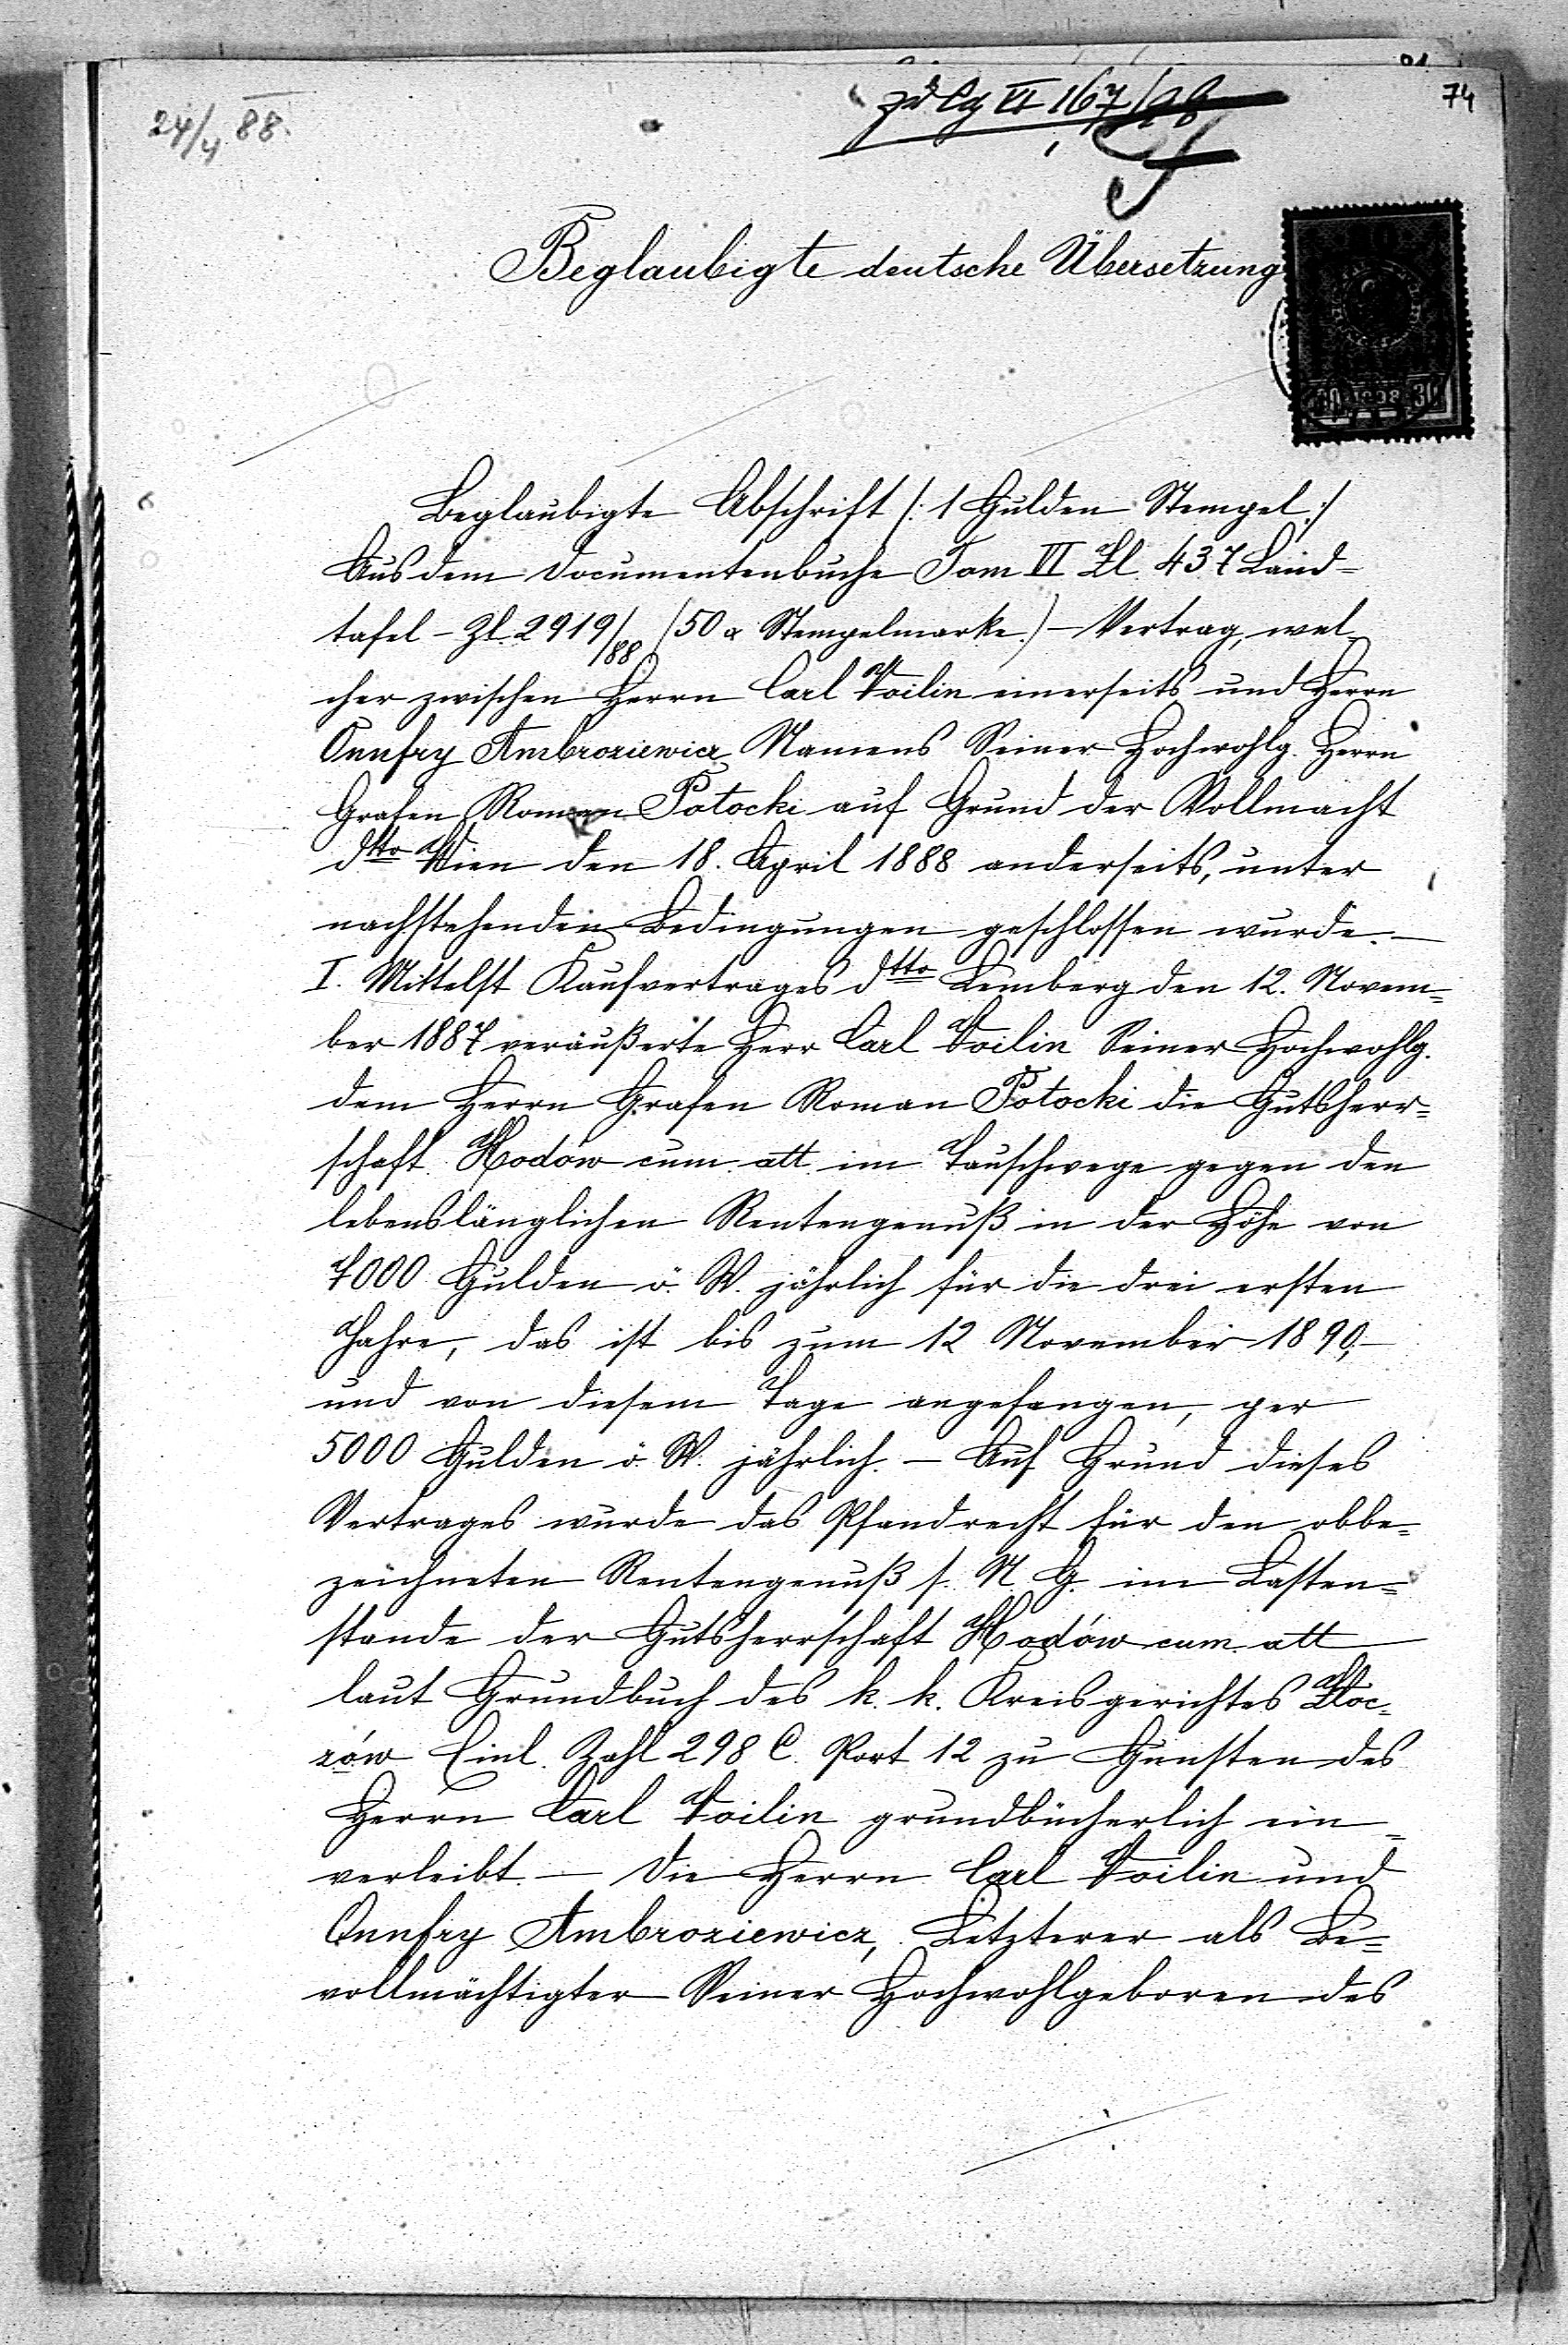 74
24/4 88.
Beglaubigte deutsche Übersetzung
Beglaubigte Abschrift /: 1 Gulden Stempel :/
Aus dem Documentenbuche Tom VI Zl. 437 Land=
tafel - Zl. 2919/88 (50 x Stempelmarke.) - Vertrag, wel-
cher zwischen Herrn Carl Voilin einerseits und Herrn
Onufry Ambroziewicz Namens Seiner Hochwohlg. Herrn
Grafen Roman Potocki auf Grund der Vollmacht
dtto Wien den 18. April 1888 anderseits, unter
nachstehenden Bedingungen geschlossen wurde. -
I. Mittelst Kaufvertrages dtto Lemberg den 12. Novem=
ber 1887 veräußerte Herr Carl Voilin Seiner Hochwohlg.
dem Herrn Grafen Roman Potocki die Gutsherr=
schaft Hodów cum att. im Tauschwege gegen den
lebenslänglichen Rentengenuß in der Höhe von
7000 Gulden ö. W. jährlich für die drei ersten
Jahre, das ist bis zum 12 November 1890, -
und von diesem Tage angefangen, per
5000 Gulden ö. W. jährlich. - Auf Grund dieses
Vertrages wurde das Pfandrecht für den obbe=
zeichneten Rentengenuß s. N. G. im Lasten=
stande der Gutsherrschaft Hodów cum att
laut Grundbuch des k. k. Kreisgerichtes Złoc=
zów Einl. Zahl 298 C. Post 12 zu Gunsten des
Herrn Carl Voilin grundbücherlich ein=
verleibt. - Die Herrn Carl Voilin und
Onufry Ambroziewicz, Letzterer als Be=
vollmächtigter Seiner Hochwohlgeboren des